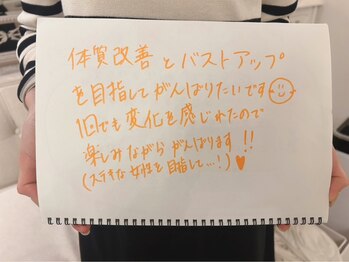 体質改善とバストアップ
を目指してがんばりたいです
1回でも変化を感じれたので
楽しみながらがんばります!!
(ステキな女性を目指して…!)♥